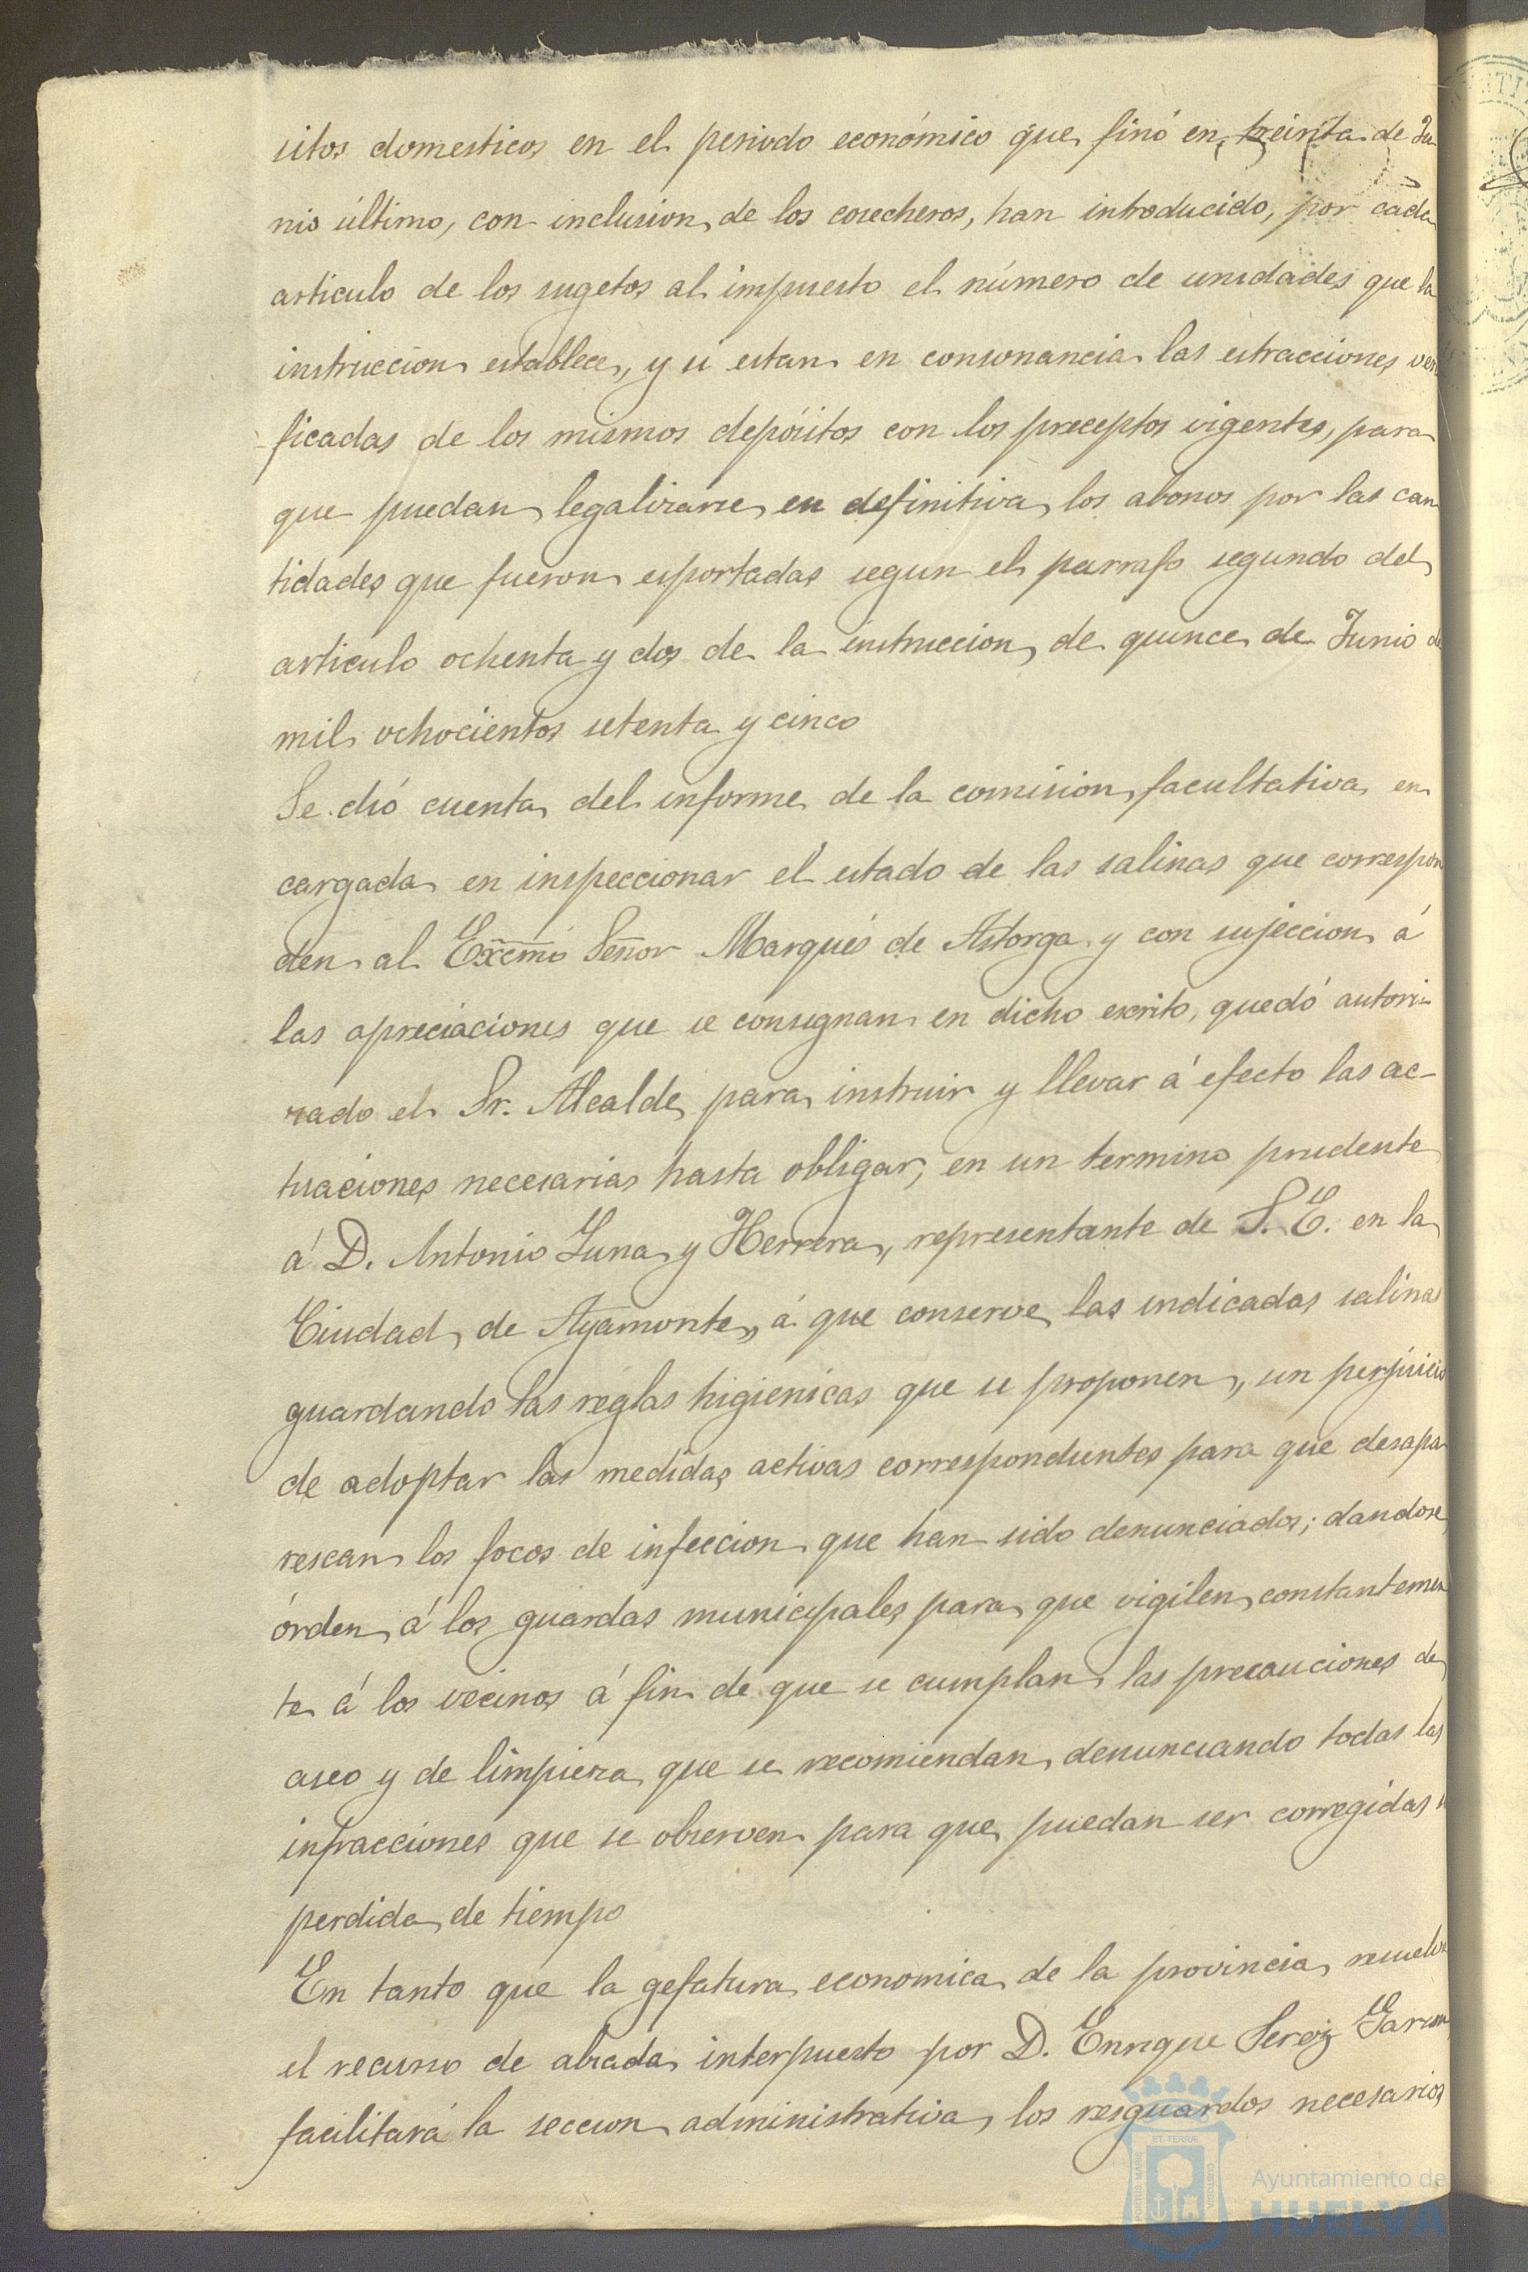 sitos domesticos en el periodo económico que finó en treinta de Ju
nio último, con inclusion de los cosecheros, han introducido, por cada
articulo de los sugetos al impuesto el número de unidades que la
instruccion establece, y si estan en consonancia las estracciones veri
ficadas de los mismos depósitos con los preceptos vigentes, para
que puedan legalizarse en definitiva los abonos por las can
tidades que fueron esportadas segun el parrafo segundo del
articulo ochenta y dos de la instruccion de quince de Junio de
mil ochocientos setenta y cinco
Se dió cuenta del informe de la comision facultativa en
cargada en inspeccionar el estado de las salinas que correspon
den al Excmo Señor Marqués de Astorga y con sujeccion á
las apreciaciones que se consignan en dicho escrito, quedó autori-
zado el Sr. Alcalde para instruir y llevar á efecto las ac-
tuaciones necesarias hasta obligar, en un termino prudente
á D. Antonio Luna y Herrera, representante de S. E. en la
Ciudad de Ayamonte, á que conserve las indicadas salinas
guardando las reglas higienicas que se proponen, sin perjuicio
de adoptar las medidas activas correspondientes para que desapa
rescan los focos de infeccion que han sido denunciados; dandose
órden á los guardas municipales para que vigilen constantemen
te á los vecinos á fin de que se cumplan las precauciones de
aseo y de limpieza que se recomiendan, denunciando todas las
infracciones que se observen para que puedan ser corregidas
perdida de tiempo
En tanto que la gefatura economica de la provincia resuelve
el recurso de alzada interpuesto por D. Enrique
facilitará la seccion administrativa los resguardos necesarios
PORTUS MARIS
ET TERRÆ
CUSTODIA
Ayuntamiento de
HUELVA